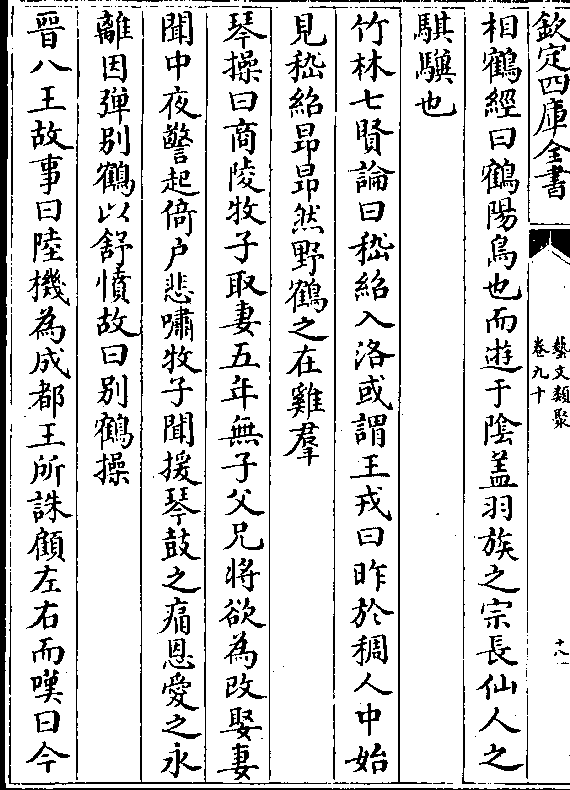 欽定四庫全書
藝文類聚
卷九十
十八
相鶴經曰鶴陽鳥也而遊于陰蓋羽族之宗長仙人之
騏驥也
竹林七賢論曰嵇紹入洛或謂王戎曰昨於稠人中始
見嵇紹昂昂然野鶴之在雞羣
琴操曰商陵牧子取妻五年無子父兄將欲為改娶妻
聞中夜驚起倚户悲嘯牧子聞援琴鼓之痛恩愛之永
離因彈别鶴以舒憤故曰别鶴操
晉八王故事曰陸機為成都王所誅顧左右而嘆曰今